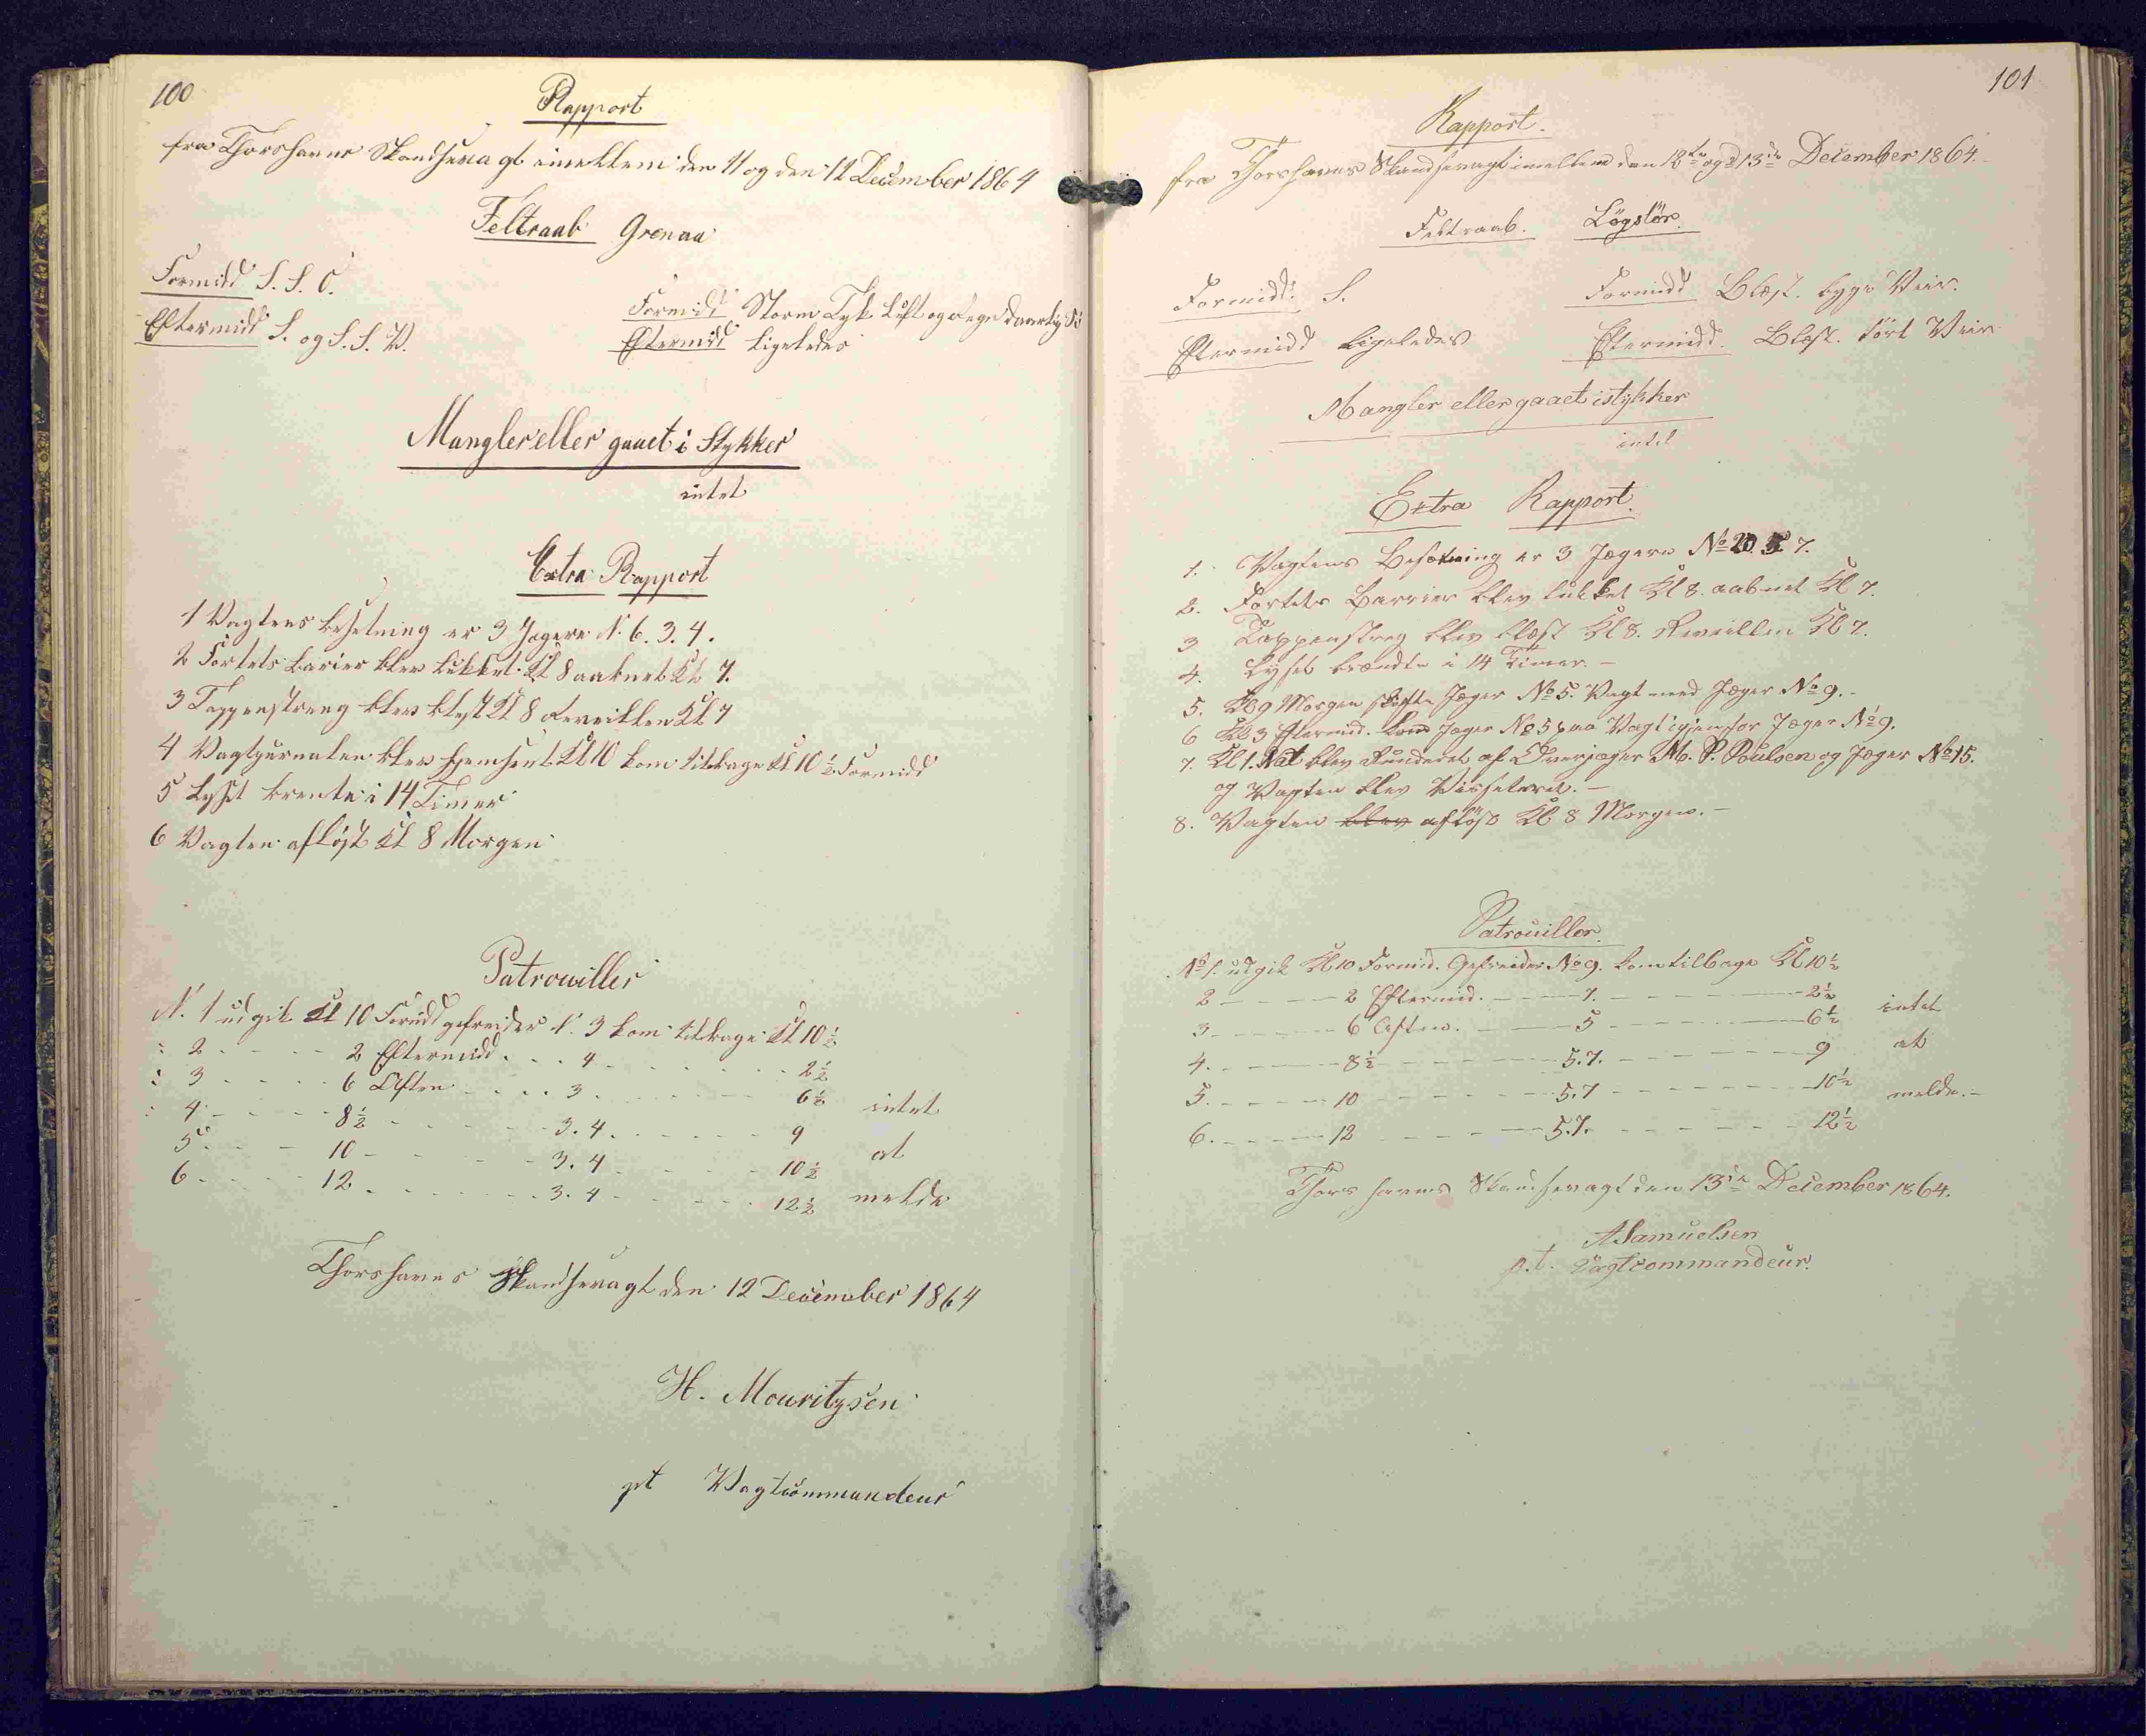 100
Rapport
fra Thorshavns Skandsevagt imellem den 11 og den 12 December 1864
Feltraab Grenaa
Formidd S. S. O.
Eftermidd S. og S. S. V.
Formidd Storm Tyk Luft og Regn daarlig
Eftermidd ligeledes
Mangler eller gaaet i Stykker
intet
Extra Rapport
1 Vagtens besetning er 3 Jægere N. 6. 3. 4.
2 Fortets barier blev lukket Kl 8 aabnet Kl 7.
3 Tappenstreng blev blest Kl 8 Reveillen Kl 7
4 Vagtjurnalen blev hjemsent Kl 10 kom tilbage Kl 10 1/2 Formidd
5 Lyset brente i 14 Timer
6 Vagten afløst Kl 8 Morgen
Patrouiller
N. 1 udgik Kl 10 Formidd gefreider N. 3 kom tilbage Kl 10 1/2
: 2 - - - - 2 Eftermidd - - - 4 - - - - - 2 1/2
: 3 - - - - 6 Aften - - - - 3 - - - - - 6 1/2 intet
: 4 - - - - 8 1/2 - - - - - 3. 4 - - - - - 9
5 - - - 10 - - - - - 3. 4 - - - - - 10 1/2 at
6 - - - - 12 - - - - - 3. 4 - - - - - 12 1/2 melde
Thorshavns Skandsevagt den 12 December 1864
H. Mouritzsen
pt Vagtcommandeur
101
Rapport.
fra Thorshavns Skandsevagt imellem den 12te og d 13de December 1864.
Feltraab. Lögstör.
Formidd. S.
Formidd Blæst. byge Veir.
Eftermidd ligeledes
Eftermidd. Blæst. tört Veir
Mangler eller gaaet istykker
intet
Extra Rapport.
1. Vagtens Besætning er 3 Jægere No 20. 5 7.
2. Fortets Barrier blev lukket Kl 8. aabnet Kl 7.
3 Tappenstreg blev blæst Kl 8. Reveillen Kl 7.
4. Lyset brændte i 14 Timer. -
5. Kl 9 Morgen skifte Jæger No 5. Vagt med Jæger No 9. -
6 Kl 3 Eftermid. kom Jæger No 5 paa Vagt igjen for Jæger No 9.
7. Kl 1. Nat blev Runderet af Overjæger M. P. Poulsen og Jæger No 15.
og Vagten blev Visiteret. -
8. Vagten blev afløst Kl 8 Morgen. -
Patrouiller.
No 1. udgik Kl 10 Formid. Gefreider No 9. kom tilbage Kl 10 1/2
2 - - - - 2 Eftermid. - - - 7. - - - - - 2 1/2 intet
3 - - - - 6 Aften. - - - 5 - - - - - 6 1/2
4. - - - - 8 1/2 - - - - - 5. 7. - - - - - 9 at
5. - - - - 10 - - - - - 5. 7 - - - - - 10 1/2 melde. -
6. - - - - 12 - - - - - 5. 7. - - - - - 12 1/2
Thorshavns Skandsevagt den 13de December 1864.
A Samuelsen
p.t. Vagtcommandeur.